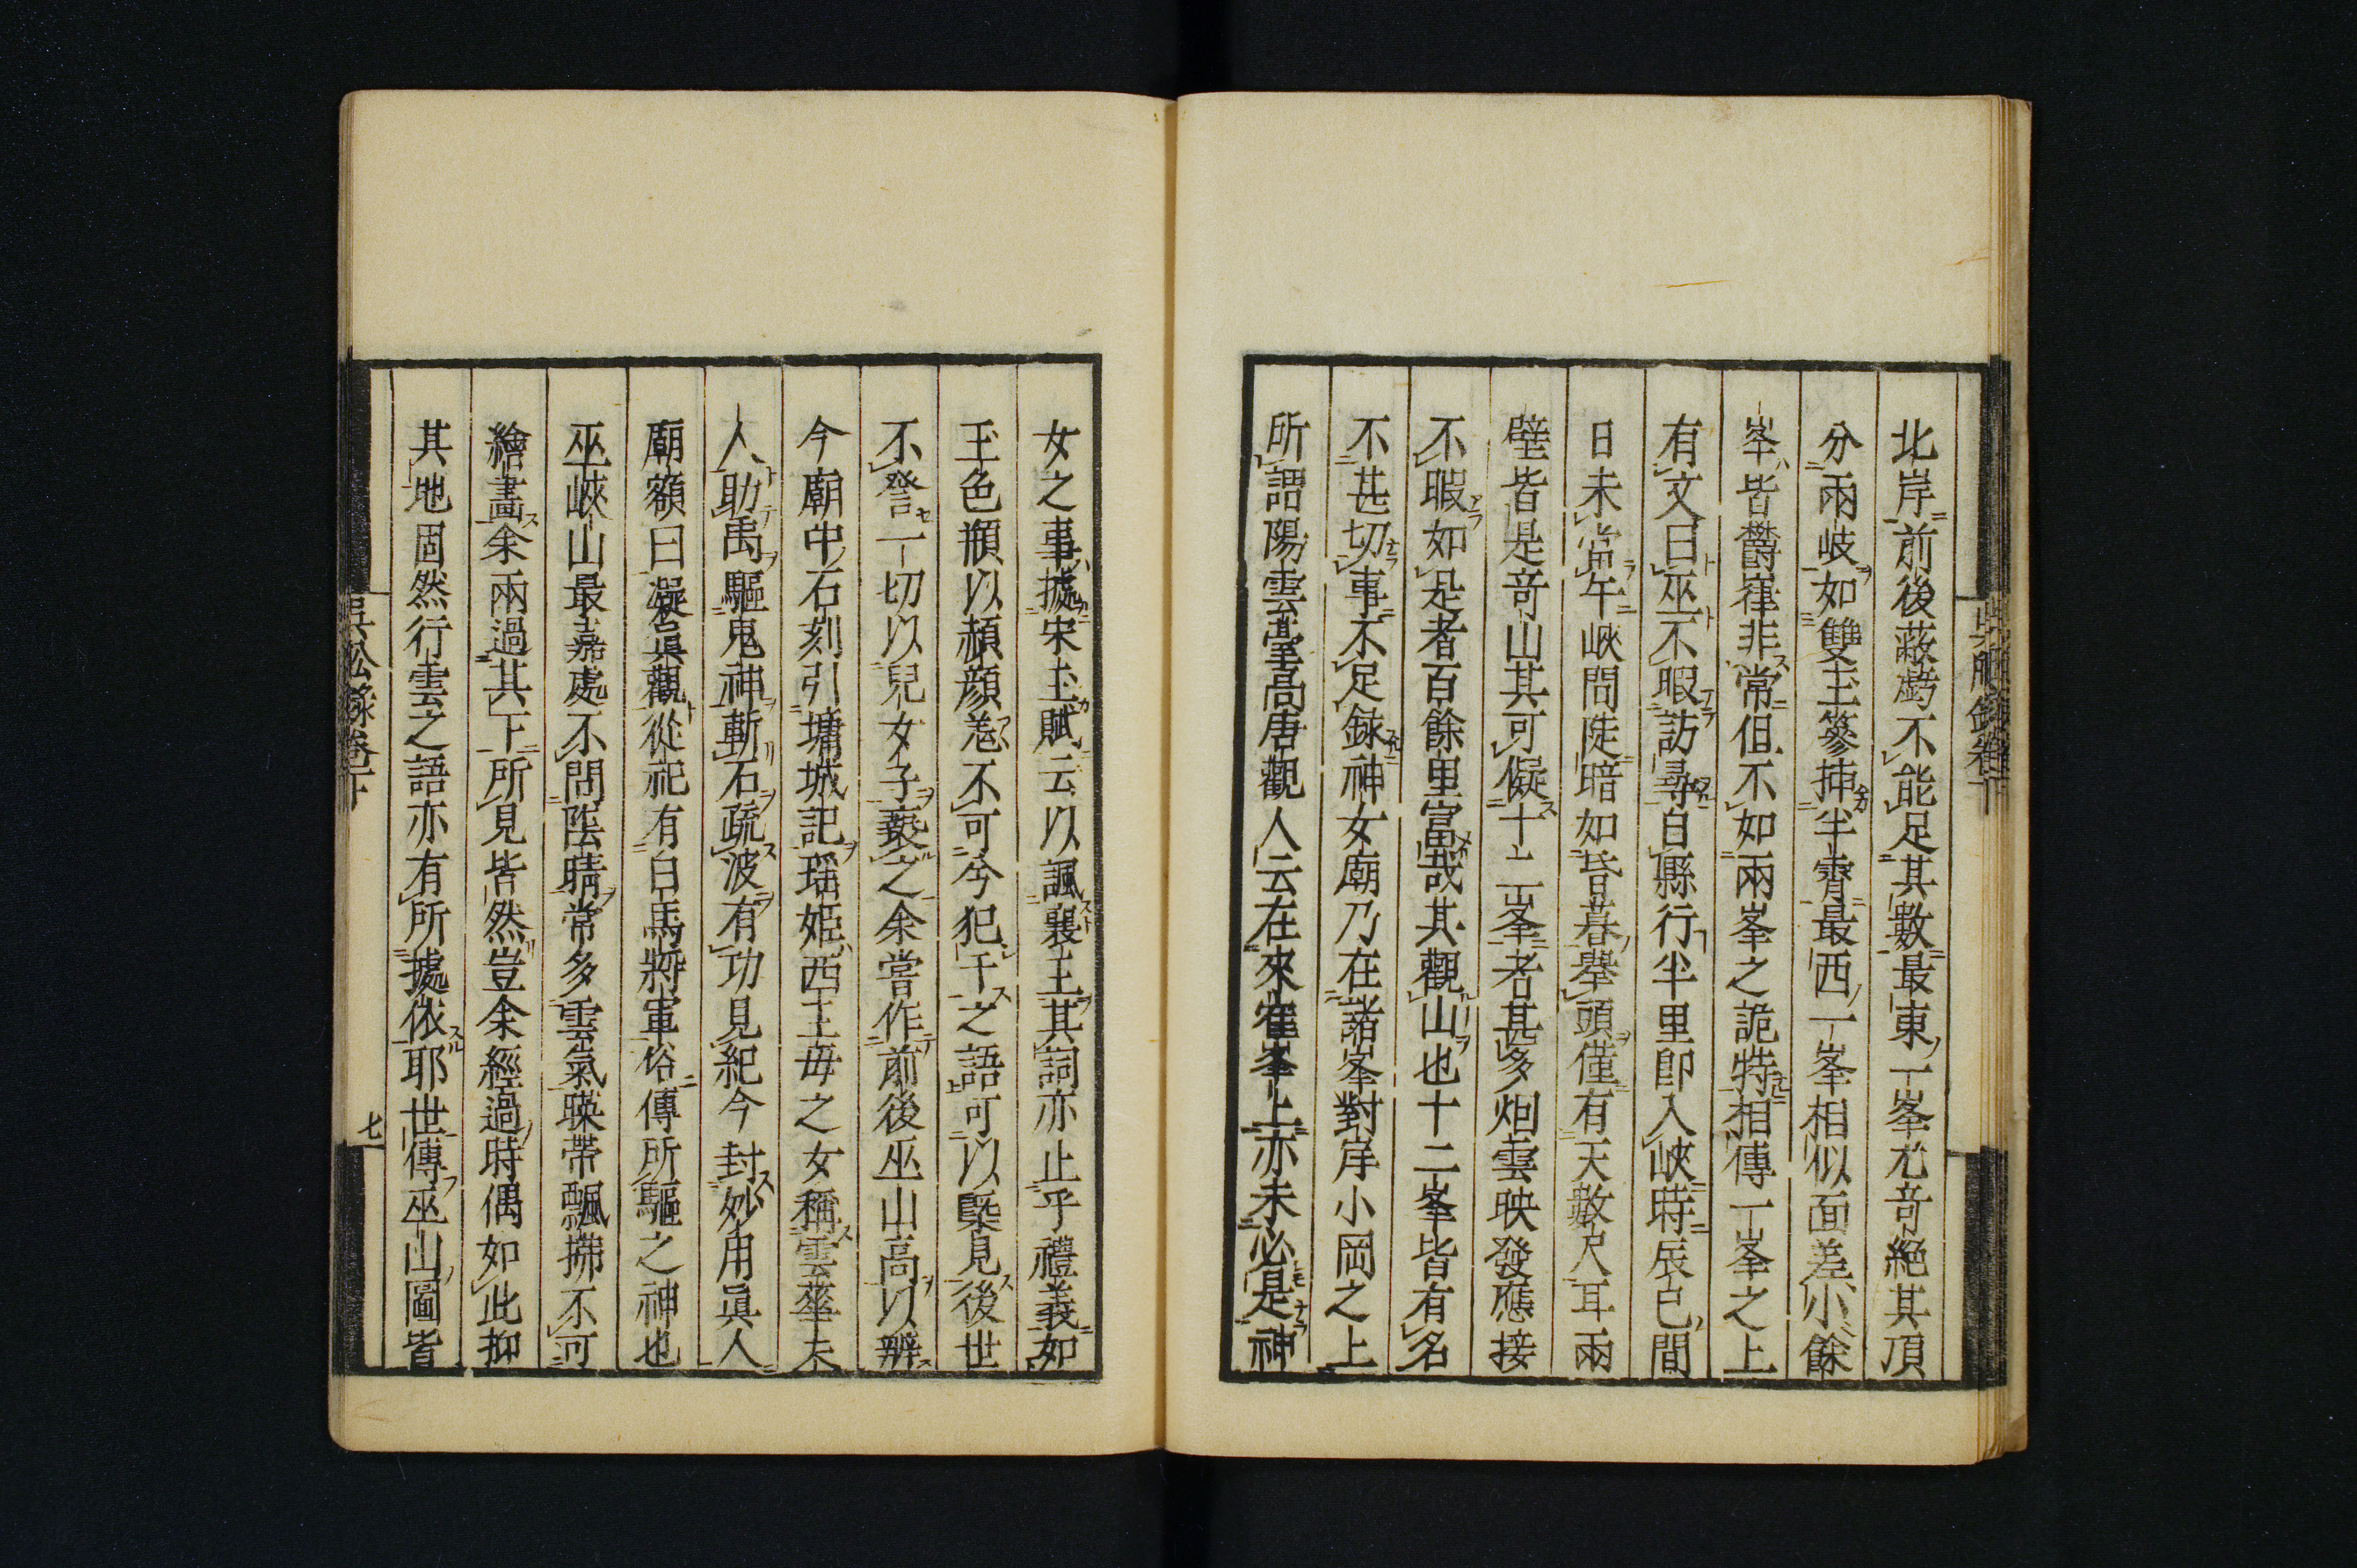 北岸前後蔽虧不能足其數最東一峯尤奇絕其頂
分兩岐如雙玉簪揷半霄最西一峯相似面差小餘
峯皆欝嵂非常但不如兩峯之詭特相傳一峯之上
有文曰巫不暇訪尋自縣行半里卽入峽時辰巳間
日未當午峽間陡暗如昏暮擧頭僅有天數尺耳兩
壁皆是奇山其可儗十二峯者甚多炟雲映發應接
不暇如是者百餘里富哉其觀山也十二峯皆有名
不甚切事不足錄神女廟乃在諸峯對岸小岡之上
所謂陽雲臺高唐觀人云在來崔峯上亦未必是神
女之事據宋玉賦云以諷襄王其詞亦止乎禮義如
玉色頩以赪顔羗不可兮犯干之語可以槩見後世
不詧一切以兒女子䙝之余嘗作前後巫山高以辨
今廟中石刻引墉城記瑶姬西王毋之女稱雲華夫
人助禹驅鬼神斬石疏波有功見紀今封妙用眞人
廟額曰凝眞觀從祀有白馬將軍俗傳所驅之神也
巫峽山最嘉處不問陰晴常多雲氣暎帶飄拂不可
繪畫余兩過其下所見皆然豈余經過時偶如此抑
其地固然行雲之語亦有所據依耶世傳巫山圖皆
吳船錄卷下
七